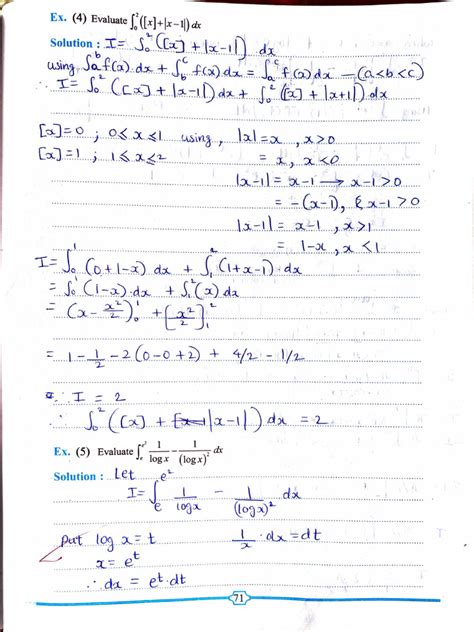 Ex. (4) Evaluate ∫₀² ([x]+|x−1|) dx
Solution : I = ∫₀² ([x] + |x−1|) dx
using ∫ₐᵇ f(x) dx + ∫_b^c f(x) dx = ∫ₐᶜ f(x) dx — (a<b<c)
∴ I = ∫₀² ([x] + |x−1|) dx + ∫₀² ([x] + |x+1|) dx
[x]=0 ; 0≤x≤1 using, |x| = x , x>0
[x]=1 ; 1≤x≤2 = x, x<0
|x−1| = x−1 → x−1>0
= −(x−1), x−1>0
|x−1| = x−1 , x>1
= 1−x , x<1
I = ∫₀¹ (0+1−x) dx + ∫₁² (1+x−1)·dx
= ∫₀¹ (1−x)·dx + ∫₁² (x) dx
= (x − x²/2)₀¹ + [x²/2]₁²
= 1 − 1/2 − 2(0−0+2) + 4/2 − 1/2
∴ I = 2
∴ ∫₀² ([x] + |x−1|) dx = 2
Ex. (5) Evaluate ∫ₑ^(e²) 1/log x − 1/(log x)² dx
Solution : Let
I = ∫ₑ^(e²) 1/log x − 1/(log x)² dx
put log x = t 1/x · dx = dt
x = eᵗ
∴ dx = eᵗ·dt
71